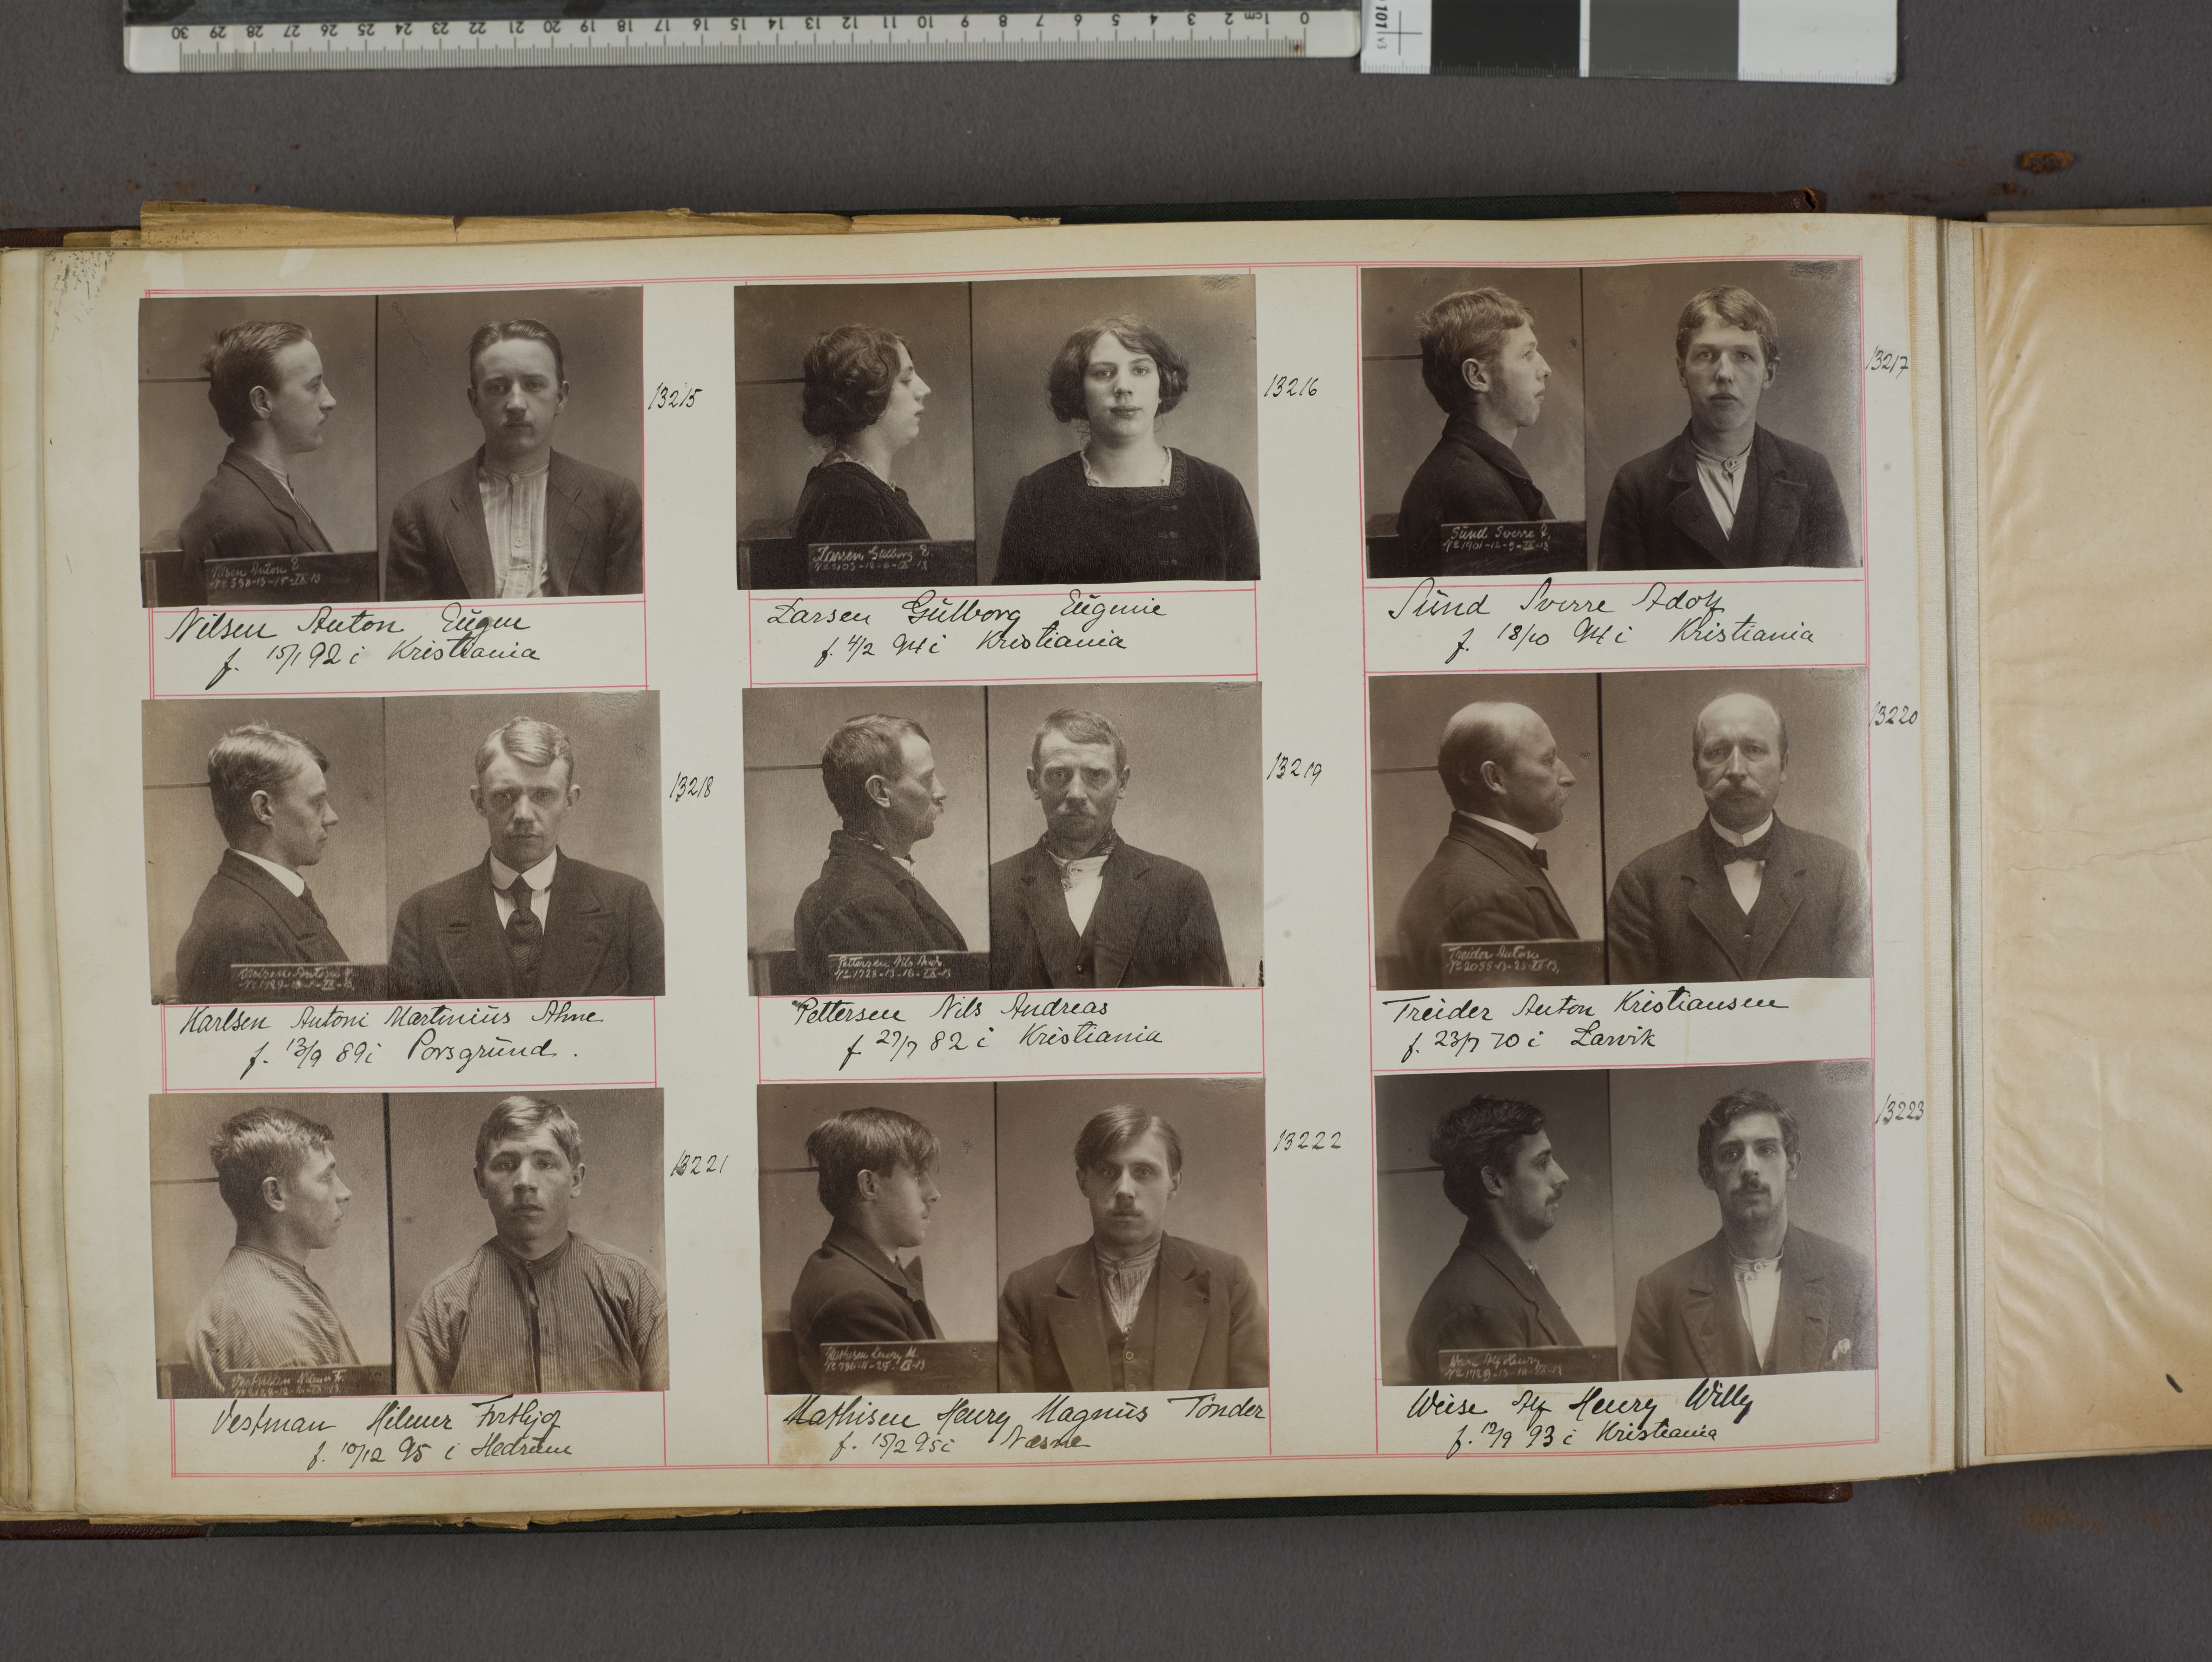 30 29 28 27 26 25 24 23 22 21 20 19 18 17 16 15 14 13 12 11 10 9 8 7 6 5 4 3 2 1cm 0
101 v3
13215
Nilsen Anton E
Nilsen Anton Eugen
f. 15/1 92 i Kristiania
13216
Larsen Gülborg E.
Larsen Gülborg Eügenie
f. 4/2 94 i Kristiania
13217
Sünd Sverre A.
Sünd Sverre Adolf
f. 18/10 94 i Kristiania
13218
Karlsen Antoni
Karlsen Antoni Martiniüs
f. 13/9 89 i Porsgründ.
13219
Pettersen Nils Andr.
Pettersen Nils Andreas
f. 27/7 82 i Kristiania
13220
Treider Anton
Treider Anton Kristiansen
f. 23/7 70 i Larvik
13221
Vestman Hilmer Fr.
Vestman Hilmer Frithjof
f. 10/12 95 i Hedrüm
13222
Mathisen Henry M.
Mathisen Henry Magnüs Tønder
f. 15/2 95 i
13223
Alf Henry
Alf Henry Willy
f. 12/9 93 i Kristiania